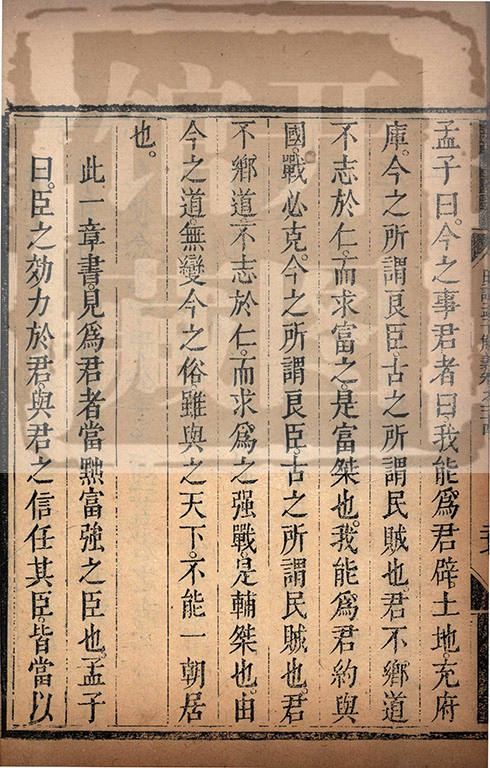 孟子曰。今之事君者曰我能爲君辟土地。充府
庫。今之所謂良臣。古之所謂民賊也。君不鄉道
不志於仁。而求富之。是富桀也。我能爲君約與
國。戰必克。今之所謂良臣。古之所謂民賊也。君
不鄉道。不志於仁。而求爲之强戰。是輔桀也。由
今之道。無變今之俗。雖與之天下。不能一朝居
也。
此一章書。見爲君者當黜富强之臣也。孟子
曰。臣之効力於君。與君之信任其臣。皆當以